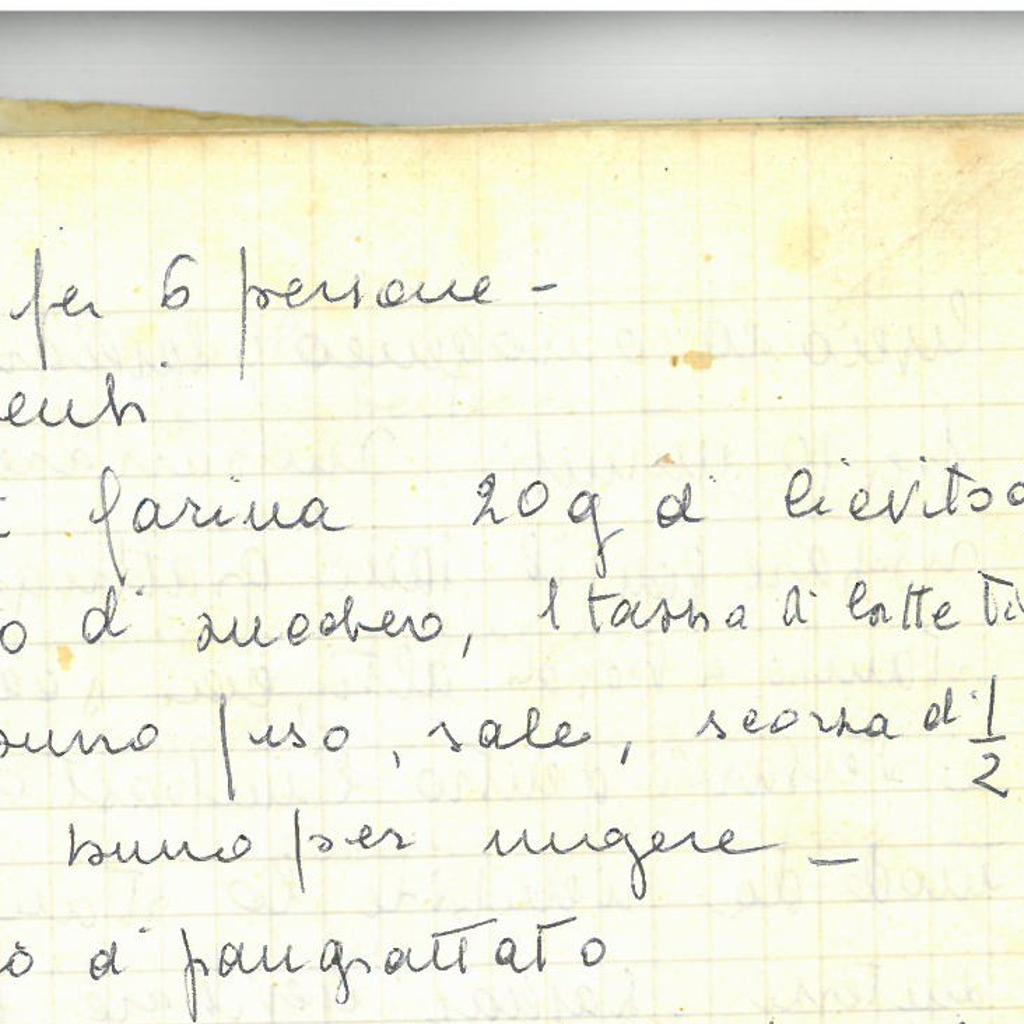 per 6 persone -
enti
farina 20 g di lievito
o di zucchero, 1 tazza di latte ti
burro fuso, sale, scorza di 1/2
burro per ungere -
di pangrattato